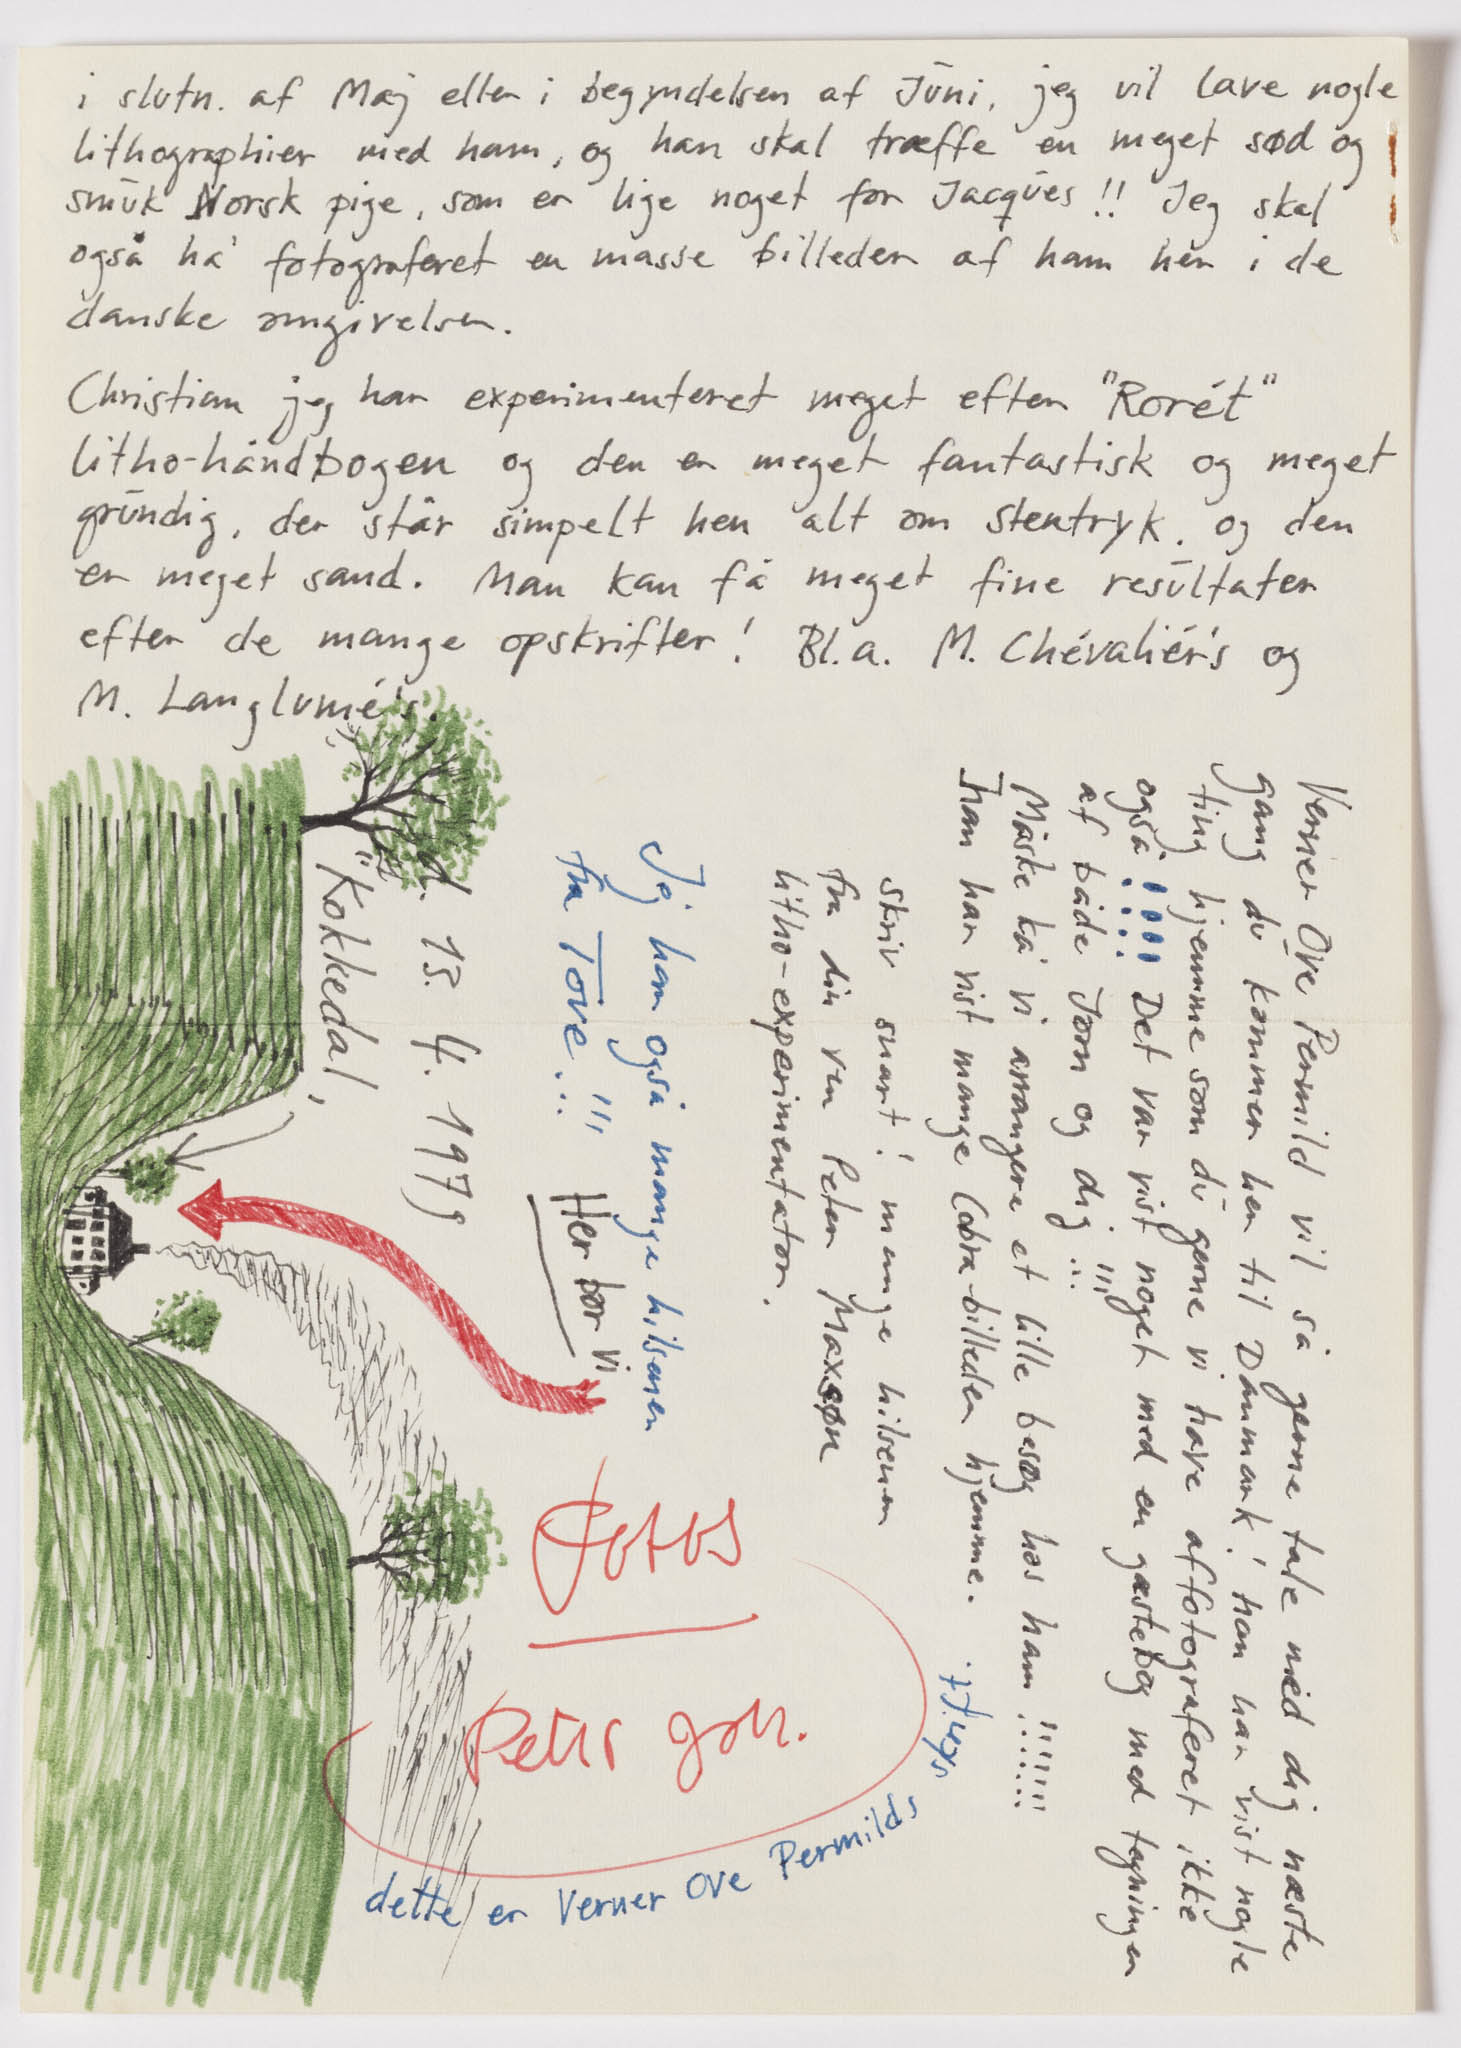 i slutn. af Maj eller i begyndelsen af Juni, jeg vil lave nogle
lithographier med ham, og han skal træffe en meget sød og
smuk Norsk pige, som er lige noget for Jacques!! Jeg skal
også ha' fotograferet en masse billeder af ham her i de
danske omgivelser.
Christian jeg har experimenteret meget efter "Rorét"
litho-håndbogen og den er meget fantastisk og meget
grundig, der står simpelt hen alt om stentryk. og den
er meget sand. Man kan få meget fine resultater
efter de mange opskrifter! Bl.a. M. Chévaliér's og
M. Langlumé's.
Verner Ove Permild vil så gerne tale med dig næste
gang du kommer her til Danmark! han har vist nogle
ting hjemme som du gerne vi have affotograferet ikke
også!!!! Det var vist noget med en gæstebog med tegninger
af både Jorn og dig!!!
Måske ka' vi arrangere et lille besøg hos ham!!!!!!
han har vist mange Cobra-billeder hjemme.
skriv snart! mange hilsener
fra din ven Peter Maxsøn
litho-experimentator.
Jeg har også mange hilsener
fra Tove!!!
Her bor vi
d. 13. 4. 1979
"Kokkedal,
Fotos
Peter Joh.
dette er Verner Ove Permilds
skrift.